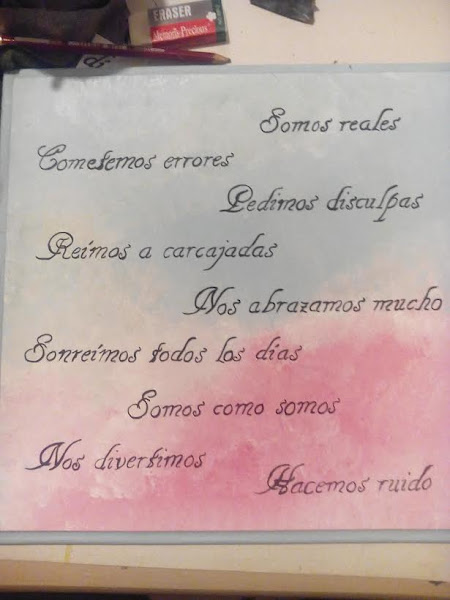 ERASER
Somos reales
Cometemos errores
Pedimos disculpas
Reímos a carcajadas
Nos abrazamos mucho
Sonreímos todos los días
Somos como somos
Nos divertimos
Hacemos ruido